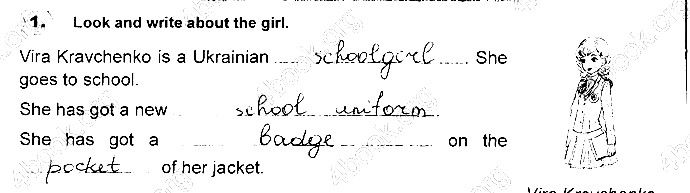 1. Look and write about the girl.
Vira Kravchenko is a Ukrainian schoolgirl. She
goes to school.
She has got a new school uniform.
She has got a badge on the
pocket of her jacket.
Vira Kravchenko